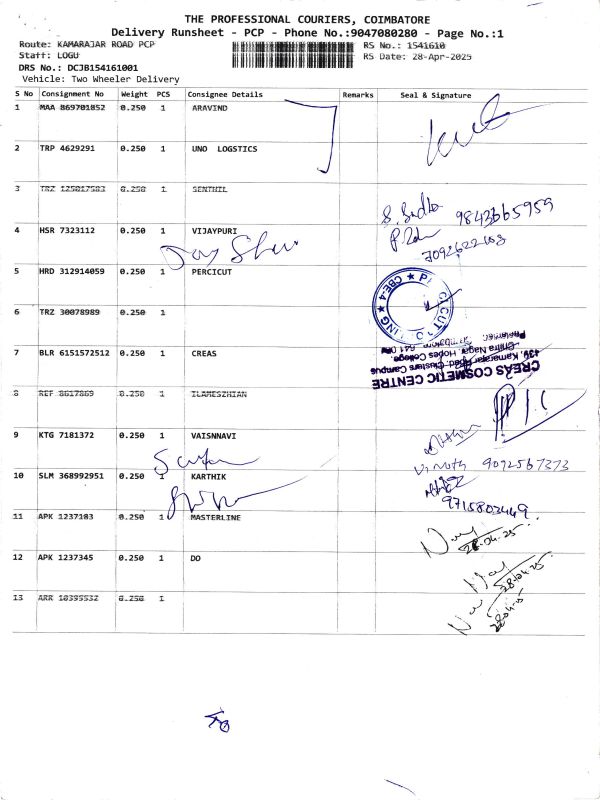 THE PROFESSIONAL COURIERS, COIMBATORE
Delivery Runsheet - PCP - Phone No.:9047080280 - Page No.:1
Route: KAMARAJAR ROAD PCP
RS No.: 1541610
Staff: LOGU
RS Date: 28-Apr-2025
DRS No.: DCJB154161001
Vehicle: Two Wheeler Delivery
S No Consignment No Weight PCS Consignee Details Remarks Seal & Signature
1 MAA 869701852 0.250 1 ARAVIND
2 TRP 4629291 0.250 1 UNO LOGSTICS
3 TRZ 125817583 0.250 1 SENTHIL
9843665959
4 HSR 7323112 0.250 1 VIJAYPURI
7092622108
5 HRD 312914059 0.250 1 PERCICUT
CBE-4
6 TRZ 30078989 0.250 1
7 BLR 6151572512 0.250 1 CREAS
CREAS COSMETIC CENTRE
439, Kamarajar Road, Clusters Campus
Chitra Nagar, Hopes College,
8 REF 8617869 0.250 1 ILAMESZHIAN
9 KTG 7181372 0.250 1 VAISNNAVI
Vinoth 9092567373
10 SLM 368992951 0.250 1 KARTHIK
9715803449
11 APK 1237183 0.250 1 MASTERLINE
28-04-25
12 APK 1237345 0.250 1 DO
28-04-25
13 ARR 10395532 0.250 1
28-04-25